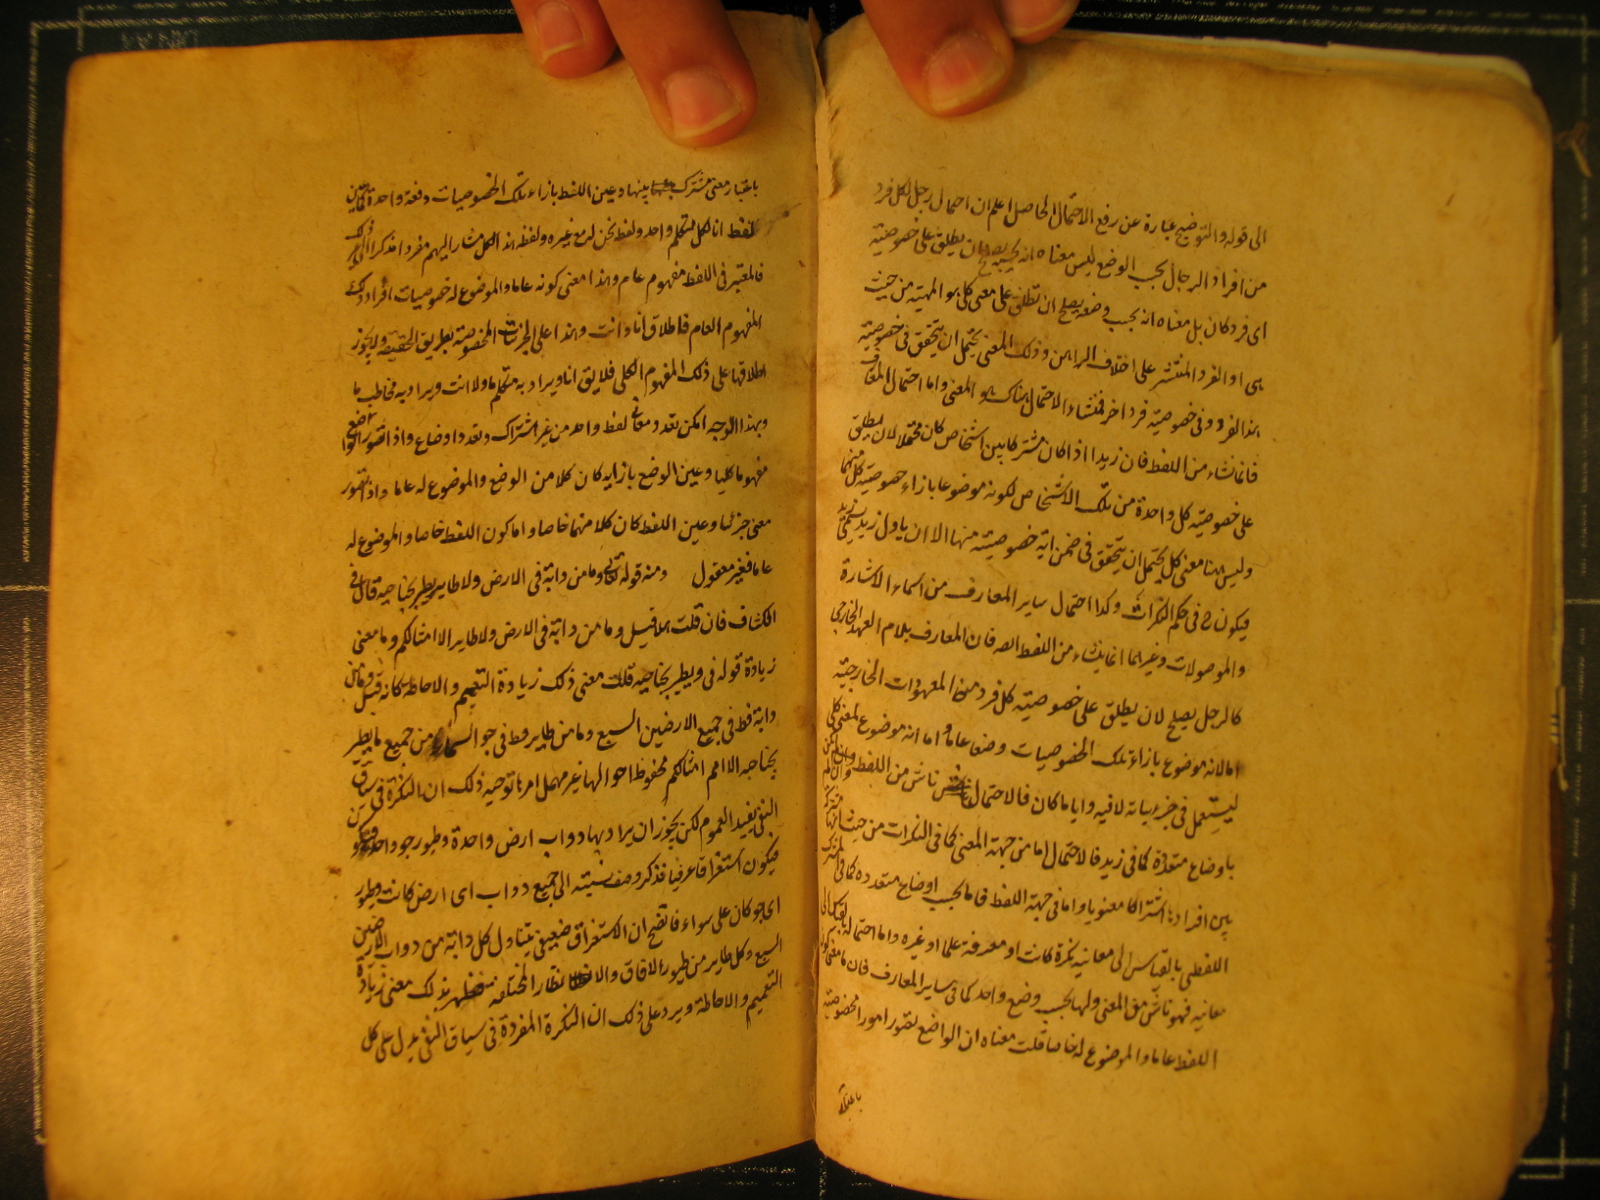 الى قوله والتوضيح عبارة عن رفع الاحتمال الحاصل اعلم ان احتمال رجل لكل فرد
من افراد الرجال بحسب الوضع ليس معناه انه بحسبه يصلح ان يطلق على خصوصية
اى فرد كان بل معناه انه بحسب وضعه يصلح ان تطلق على معنى كلى هو المهية من حيث
هى او الفرد المنتشر على اختلاف الرايين وذلك المعنى يحتمل ان يتحقق فى خصوصية
هذا الفرد وفى خصوصية فرد اخر فمنشاء الاحتمال هناك هو المعنى واما احتمال المعارف
فانما نشاء من اللفظ فان زيدا اذا كان مشتركا بين اشخاص كان محتملا لان يطلق
على خصوصية كل واحدة من تلك الاشخاص لكونه موضوعا بازاء خصوصية كل منهما
وليس هنا معنى كلى يحتمل ان يتحقق فى ضمن اية خصوصية منها الا ان ياول زيد
فيكون ح فى حكم النكرات وكذا احتمال ساير المعارف من اسماء الاشارة
والموصولات وغيرهما انما ينشاء من اللفظ فان المعارف بلام العهد الخارجى
كالرجل يصلح لان يطلق على خصوصية كل فرد من المعهودات الخارجية
اما لانه موضوع بازاء تلك الخصوصيات وضعا عاما واما انه موضوع لمعنى كلى
ليستعمل فى جزيياته لا فيه واياما كان فالاحتمال ناش من اللفظ
باوضاع متعددة كما فى زيد فالاحتمال اما من جهة المعنى كما فى النكرات من حيث
بين افراده اشتراكا معنويا واما فى جهة اللفظ فاما بحسب اوضاع متعددة كما فى
اللفظى بالقياس الى معانيه نكرة كانت او معرفة علما او غيره واما احتماله بالقياس الى
معانيه فهو ناش من المعنى ولها بحسب وضع واحد كما فى ساير المعارف فان
اللفظ عاما والموضوع له خاصا قلت معناه ان الواضع تصور امورا مخصوصة
باعتبار
باعتبار معنى مشترك بينها وعين اللفظ بازاء تلك الخصوصيات دفعة واحدة
لفظ انا لكل متكلم واحد ولفظ نحن له مع غيره ولفظ هذا لكل مشار اليه مفرد مذكر
فالمعتبر فى اللفظ مفهوم عام وهذا معنى كونه عاما والموضوع له خصوصيات افراد ذلك
المفهوم العام فاطلاق انا وانت وهذا على الجزئيات المخصوصة بطريق الحقيقة ولا يجوز
اطلاقها على ذلك المفهوم الكلى فلا يق انا ويراد به متكلم ما ولا انت ويراد به مخاطب ما
وبهذا الوجه امكن تعدد معانى لفظ واحد من غير اشتراك وتعدد اوضاع واذا تصور الواضع
مفهوما كليا وعين الوضع بازايه كان كلا من الوضع والموضوع له عاما واذا تصور
معنى جزئيا وعين اللفظ كان كلا منهما خاصا واما كون اللفظ خاصا والموضوع له
عاما فغير معقول ومنه قوله تعالى وما من دابة فى الارض ولا طاير يطير بجناحيه قال فى
الكشاف فان قلت هلا قيل وما من دابة فى الارض ولا طاير الا امثالكم وما معنى
زيادة قوله فى ويطير بجناحيه قلت معنى ذلك زيادة التعميم والاحاطة كانه قيل وما من
دابة قط فى جميع الارضين السبع وما من طاير قط فى جو السماء من جميع ما يطير
بجناحيه الا امم امثالكم محفوظ احوالها غير مهمل امرها توجيه ذلك ان النكرة فى سياق
النفى يفيد العموم لكن يجوز ان يراد بها دواب ارض واحدة وطيور جو واحد
فيكون استغراقا عرفيا فذكر وصف نسبته الى جميع دواب اى ارض كانت وطيور
اى جو كان على سواء فاتضح ان الاستغراق حقيقى يتناول كل دابة من دواب الارضين
السبع وكل طاير من طيور الافاق والاقطار المختلفة فظهر بذلك معنى زيادة
التعميم والاحاطة ويرد على ذلك ان النكرة المفردة فى سياق النفى يدل على كل